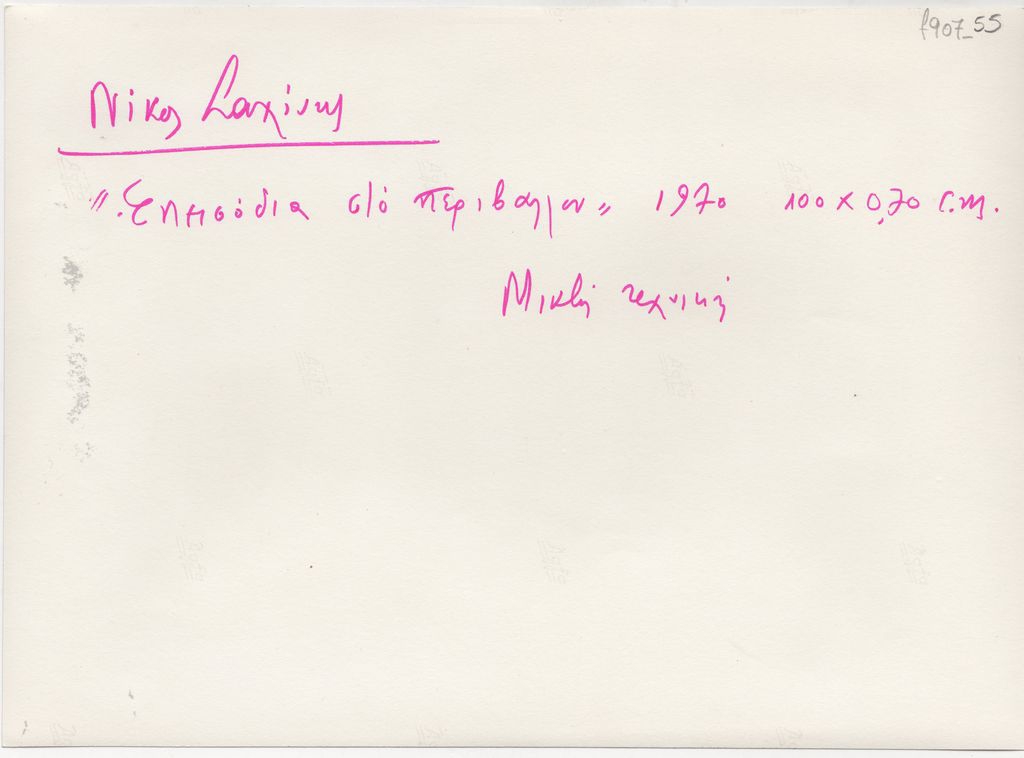 f907_55
Νίκος Σαχίνης
"Επεισόδια στό περιβάλλον" 1970 100 x 0,70 c.m.
Μικτή τεχνική